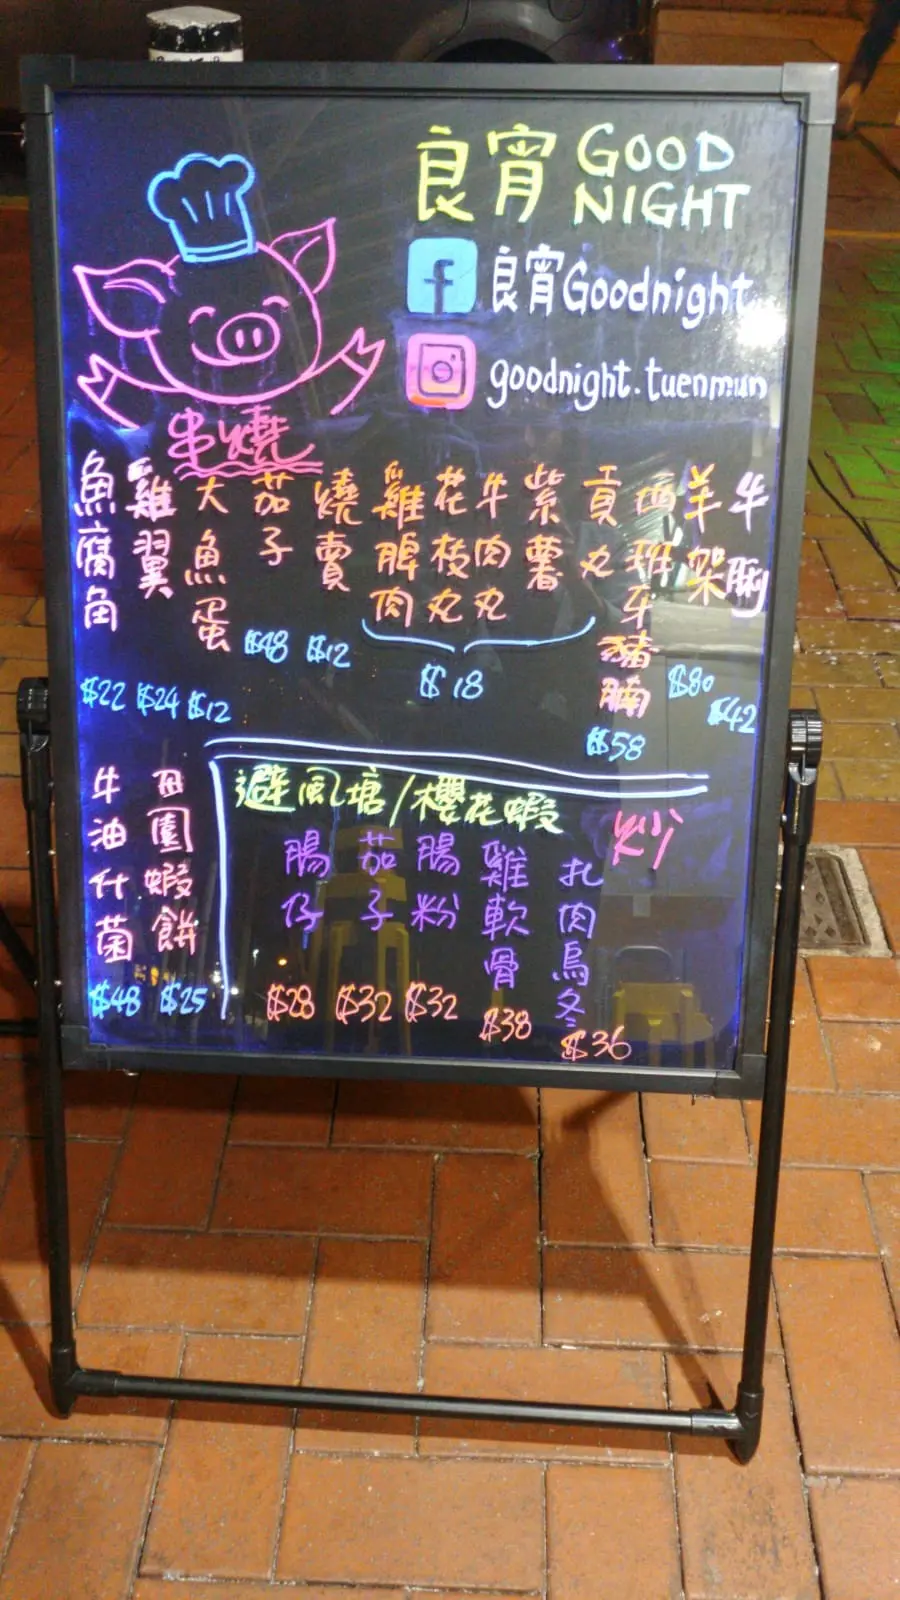 良宵 GOOD NIGHT
良宵Goodnight
goodnight.tuenmun
串燒
魚腐角 $22
雞翼 $24
大魚蛋 $12
茄子 $48
燒賣 $12
雞脾肉
花枝丸
牛肉丸
紫薯
$18
貢丸
西班牙豬腩 $58
羊架 $80
牛脷 $42
牛油什菌 $48
田園蝦餅 $25
避風塘/櫻花蝦
炒
腸仔 $28
茄子 $32
腸粉 $32
雞軟骨 $38
扎肉烏冬 $36